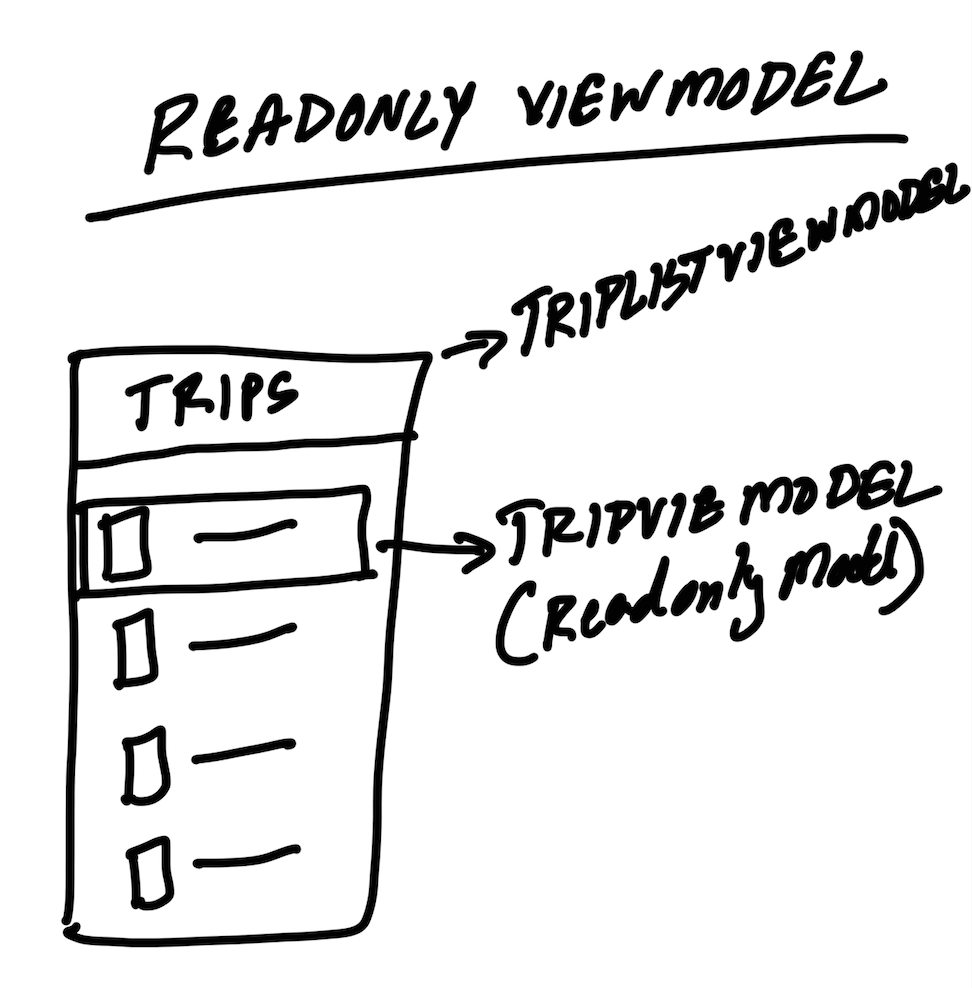 READONLY VIEWMODEL
TRIPLISTVIEWMODEL
TRIPS
TRIPVIEMODEL
(Readonly Model)